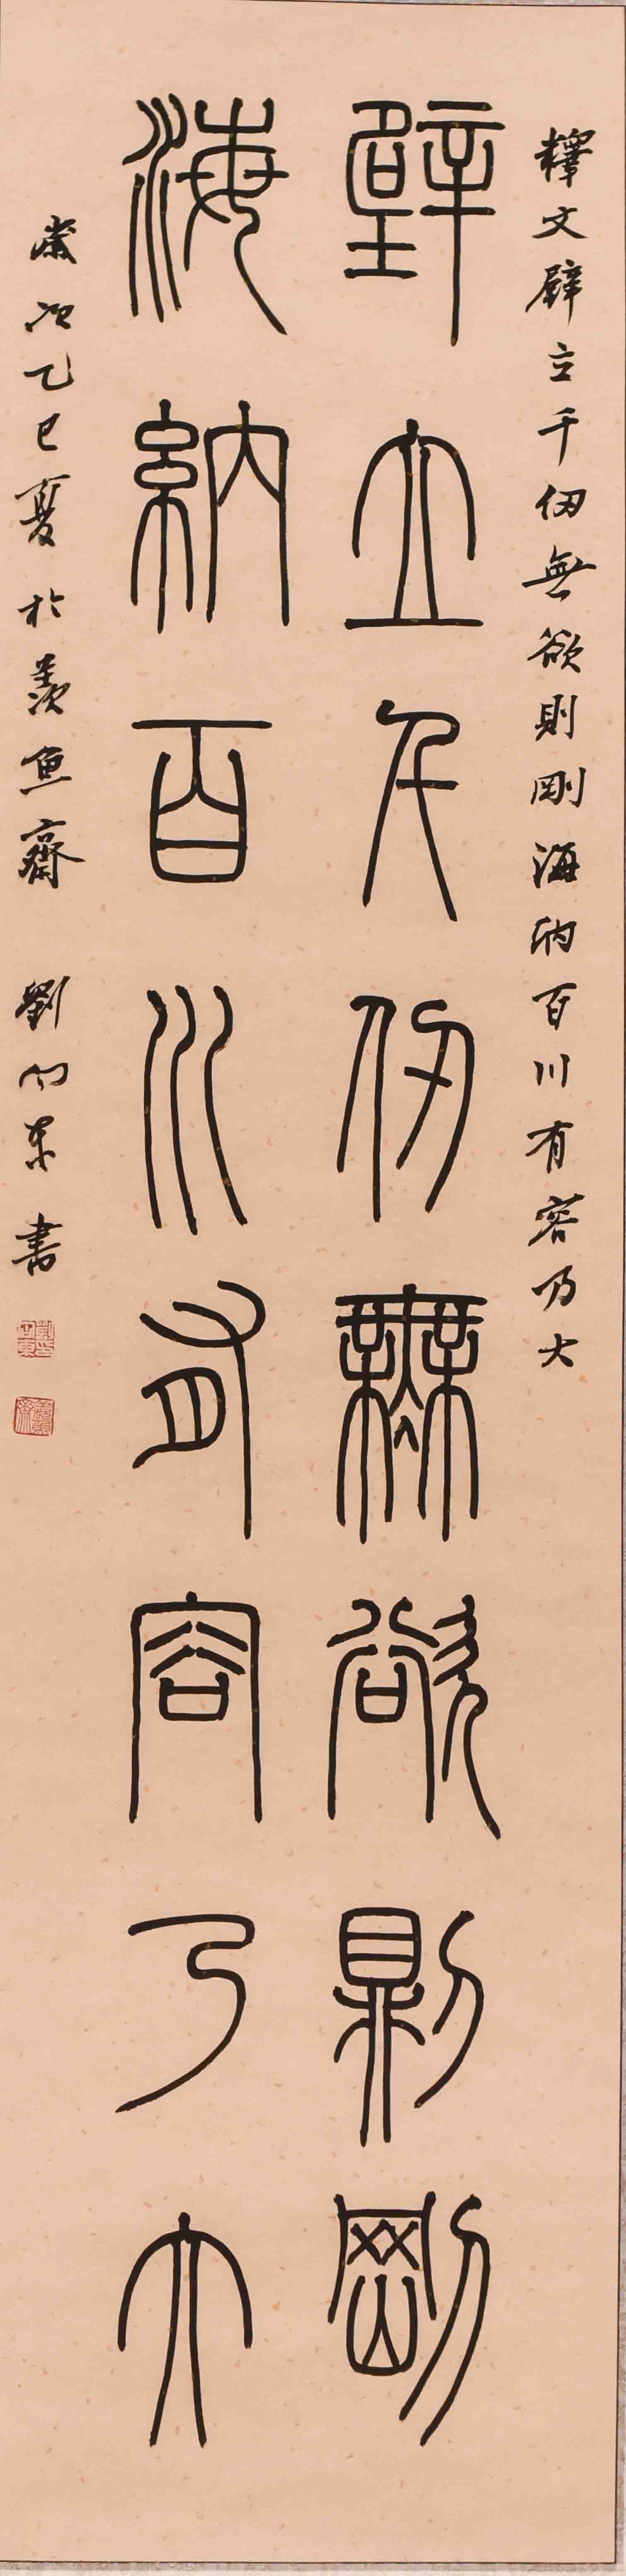 釋文壁立千仞無欲則剛海納百川有容乃大
壁立千仞無欲則剛
海納百川有容乃大
歲次乙巳夏於羨魚齋 劉向東書